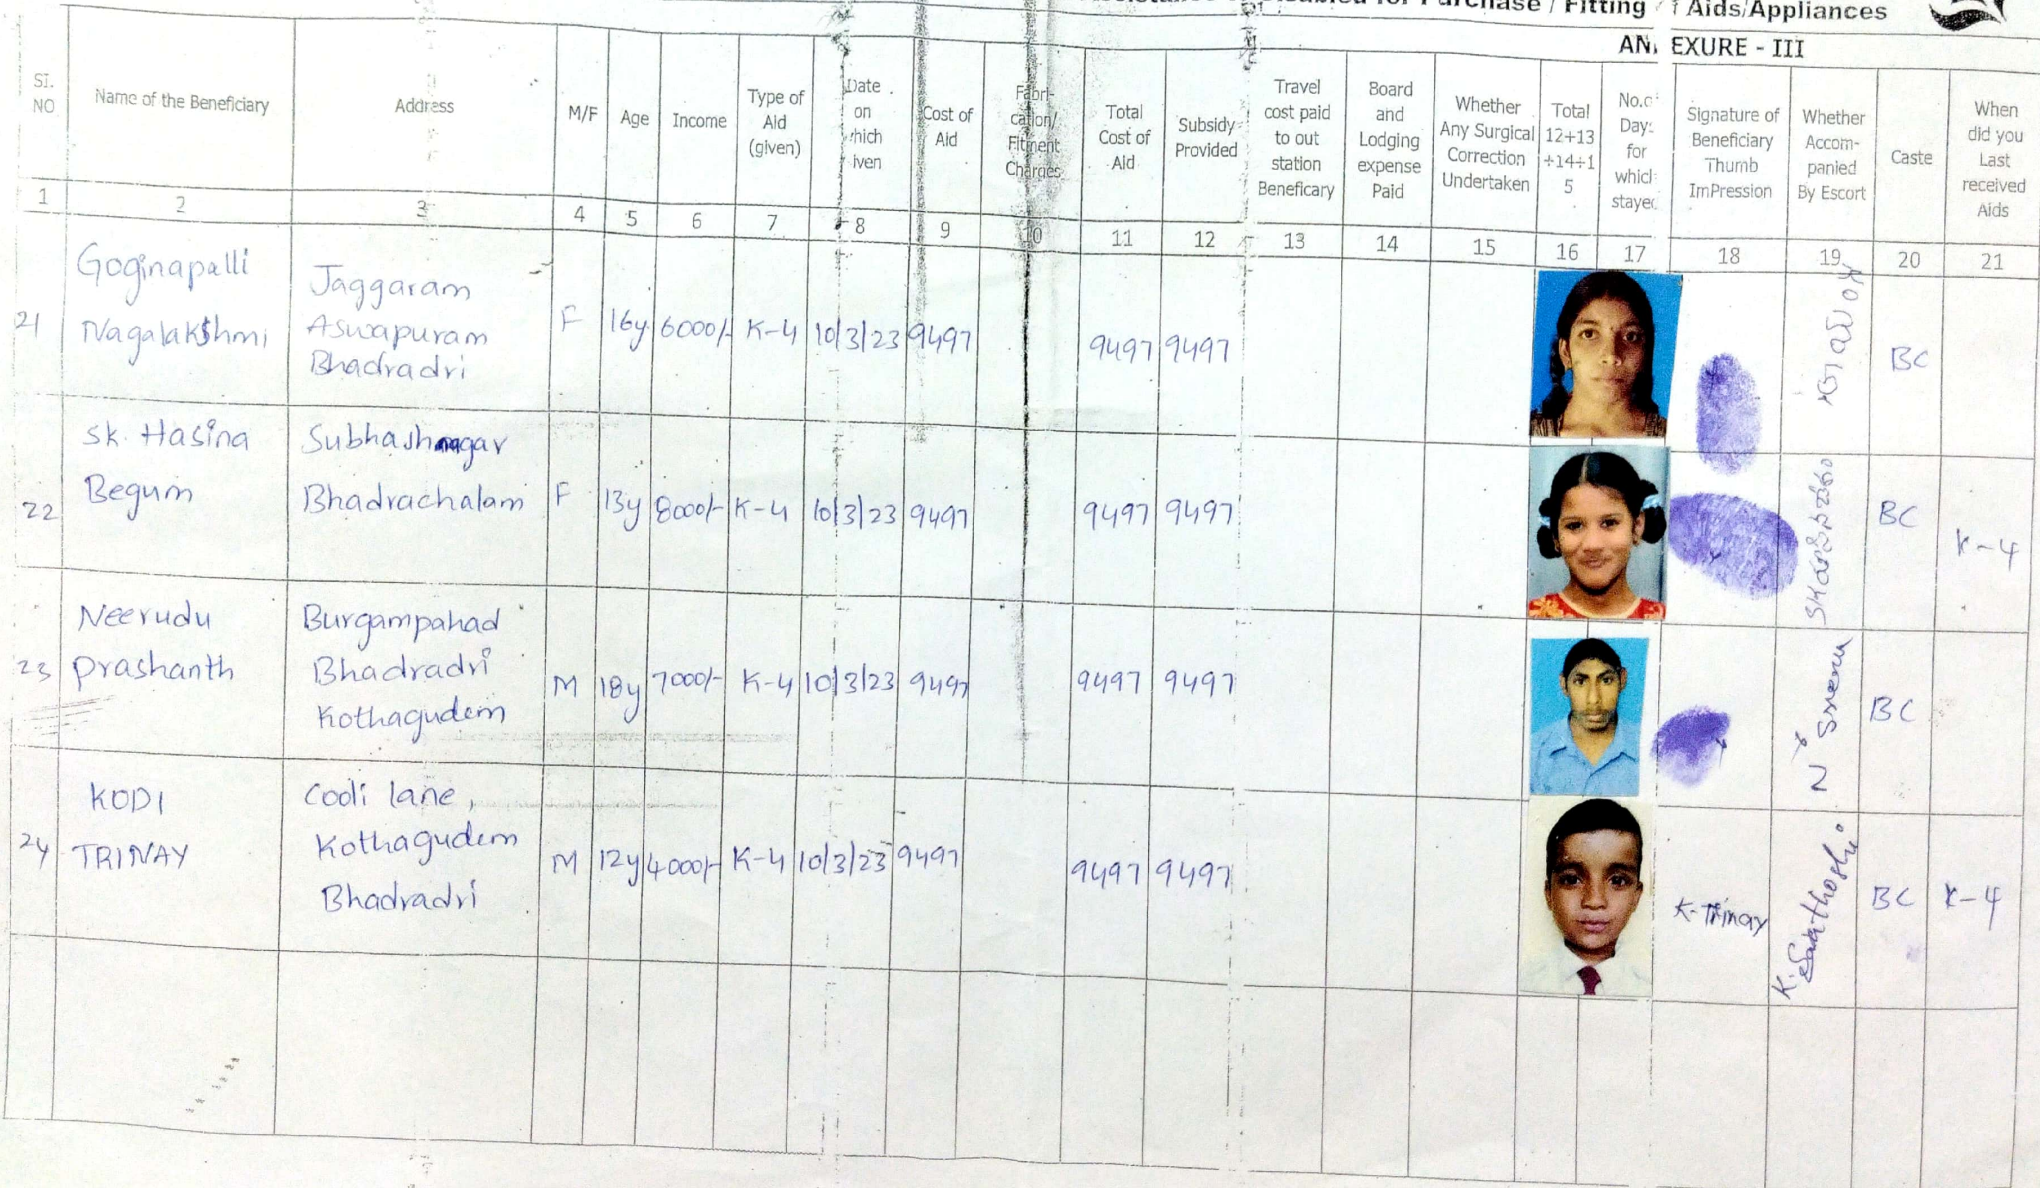 Purchase / Fitting Aids/Appliances
ANNEXURE - III
SI. NO
Name of the Beneficiary
Address
M/F
Age
Income
Type of Aid (given)
Date on which iven
Cost of Aid
Fabri-cation/ Fitment Charges
Total Cost of Aid
Subsidy Provided
Travel cost paid to out station Beneficary
Board and Lodging expense Paid
Whether Any Surgical Correction Undertaken
Total 12+13 +14+1 5
No.of Days for which stayed
Signature of Beneficiary Thumb ImPression
Whether Accom-panied By Escort
Caste
When did you Last received Aids
1 2 3 4 5 6 7 8 9 10 11 12 13 14 15 16 17 18 19 20 21
21 Goginapalli Nagalakshmi Jaggaram Aswapuram Bhadradri F 16y 6000/- K-4 10/3/23 9497 9497 9497 BC
22 Sk. Hasina Begum Subhashnagar Bhadrachalam F 13y 8000/- K-4 10/3/23 9497 9497 9497 BC K-4
23 Neerudu Prashanth Burgampahad Bhadradri Kothagudem M 18y 7000/- K-4 10/3/23 9497 9497 9497 N Sreenu BC
24 KODI TRINAY Cooli lane, Kothagudem Bhadradri M 12y 4000/- K-4 10/3/23 9497 9497 9497 K-Trinay BC K-4